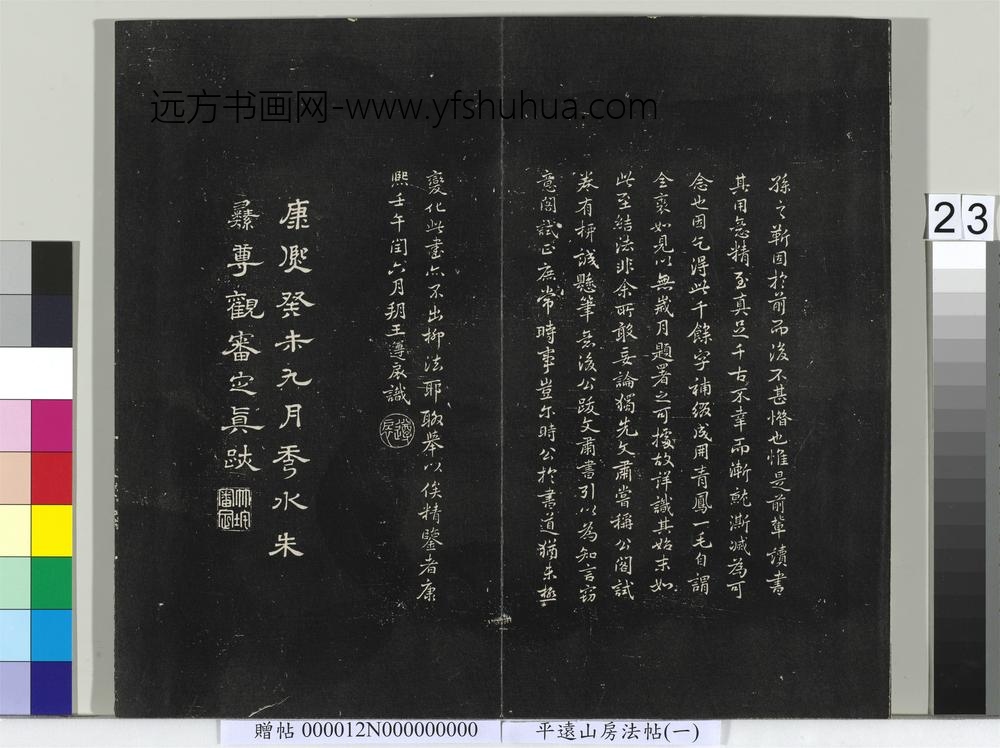 远方书画网-www.yfshuhua.com
孫之靳固於前而後不甚惜也惟是前軰讀書
其用意精至真足千古不幸而漸就澌滅為可
念也因乞得此千餘字補綴成冊青鳳一毛自謂
全裘如見以無歲月題署之可據故詳識其始末如
此至結法非余所敢妄論獨先文肅嘗稱公閣試
卷有柳誠懸筆無後公跋文肅書引以為知言竊
意閣試正庶常時事豈尔時公於書道猶未極
變化此書亦不出柳法耶聊舉以俟精鑒者康
熈壬午閏六月朔王遵扆識
康熈癸未九月秀水朱
彝尊觀審定真跡
23
贈帖 000012N000000000
平遠山房法帖(一)